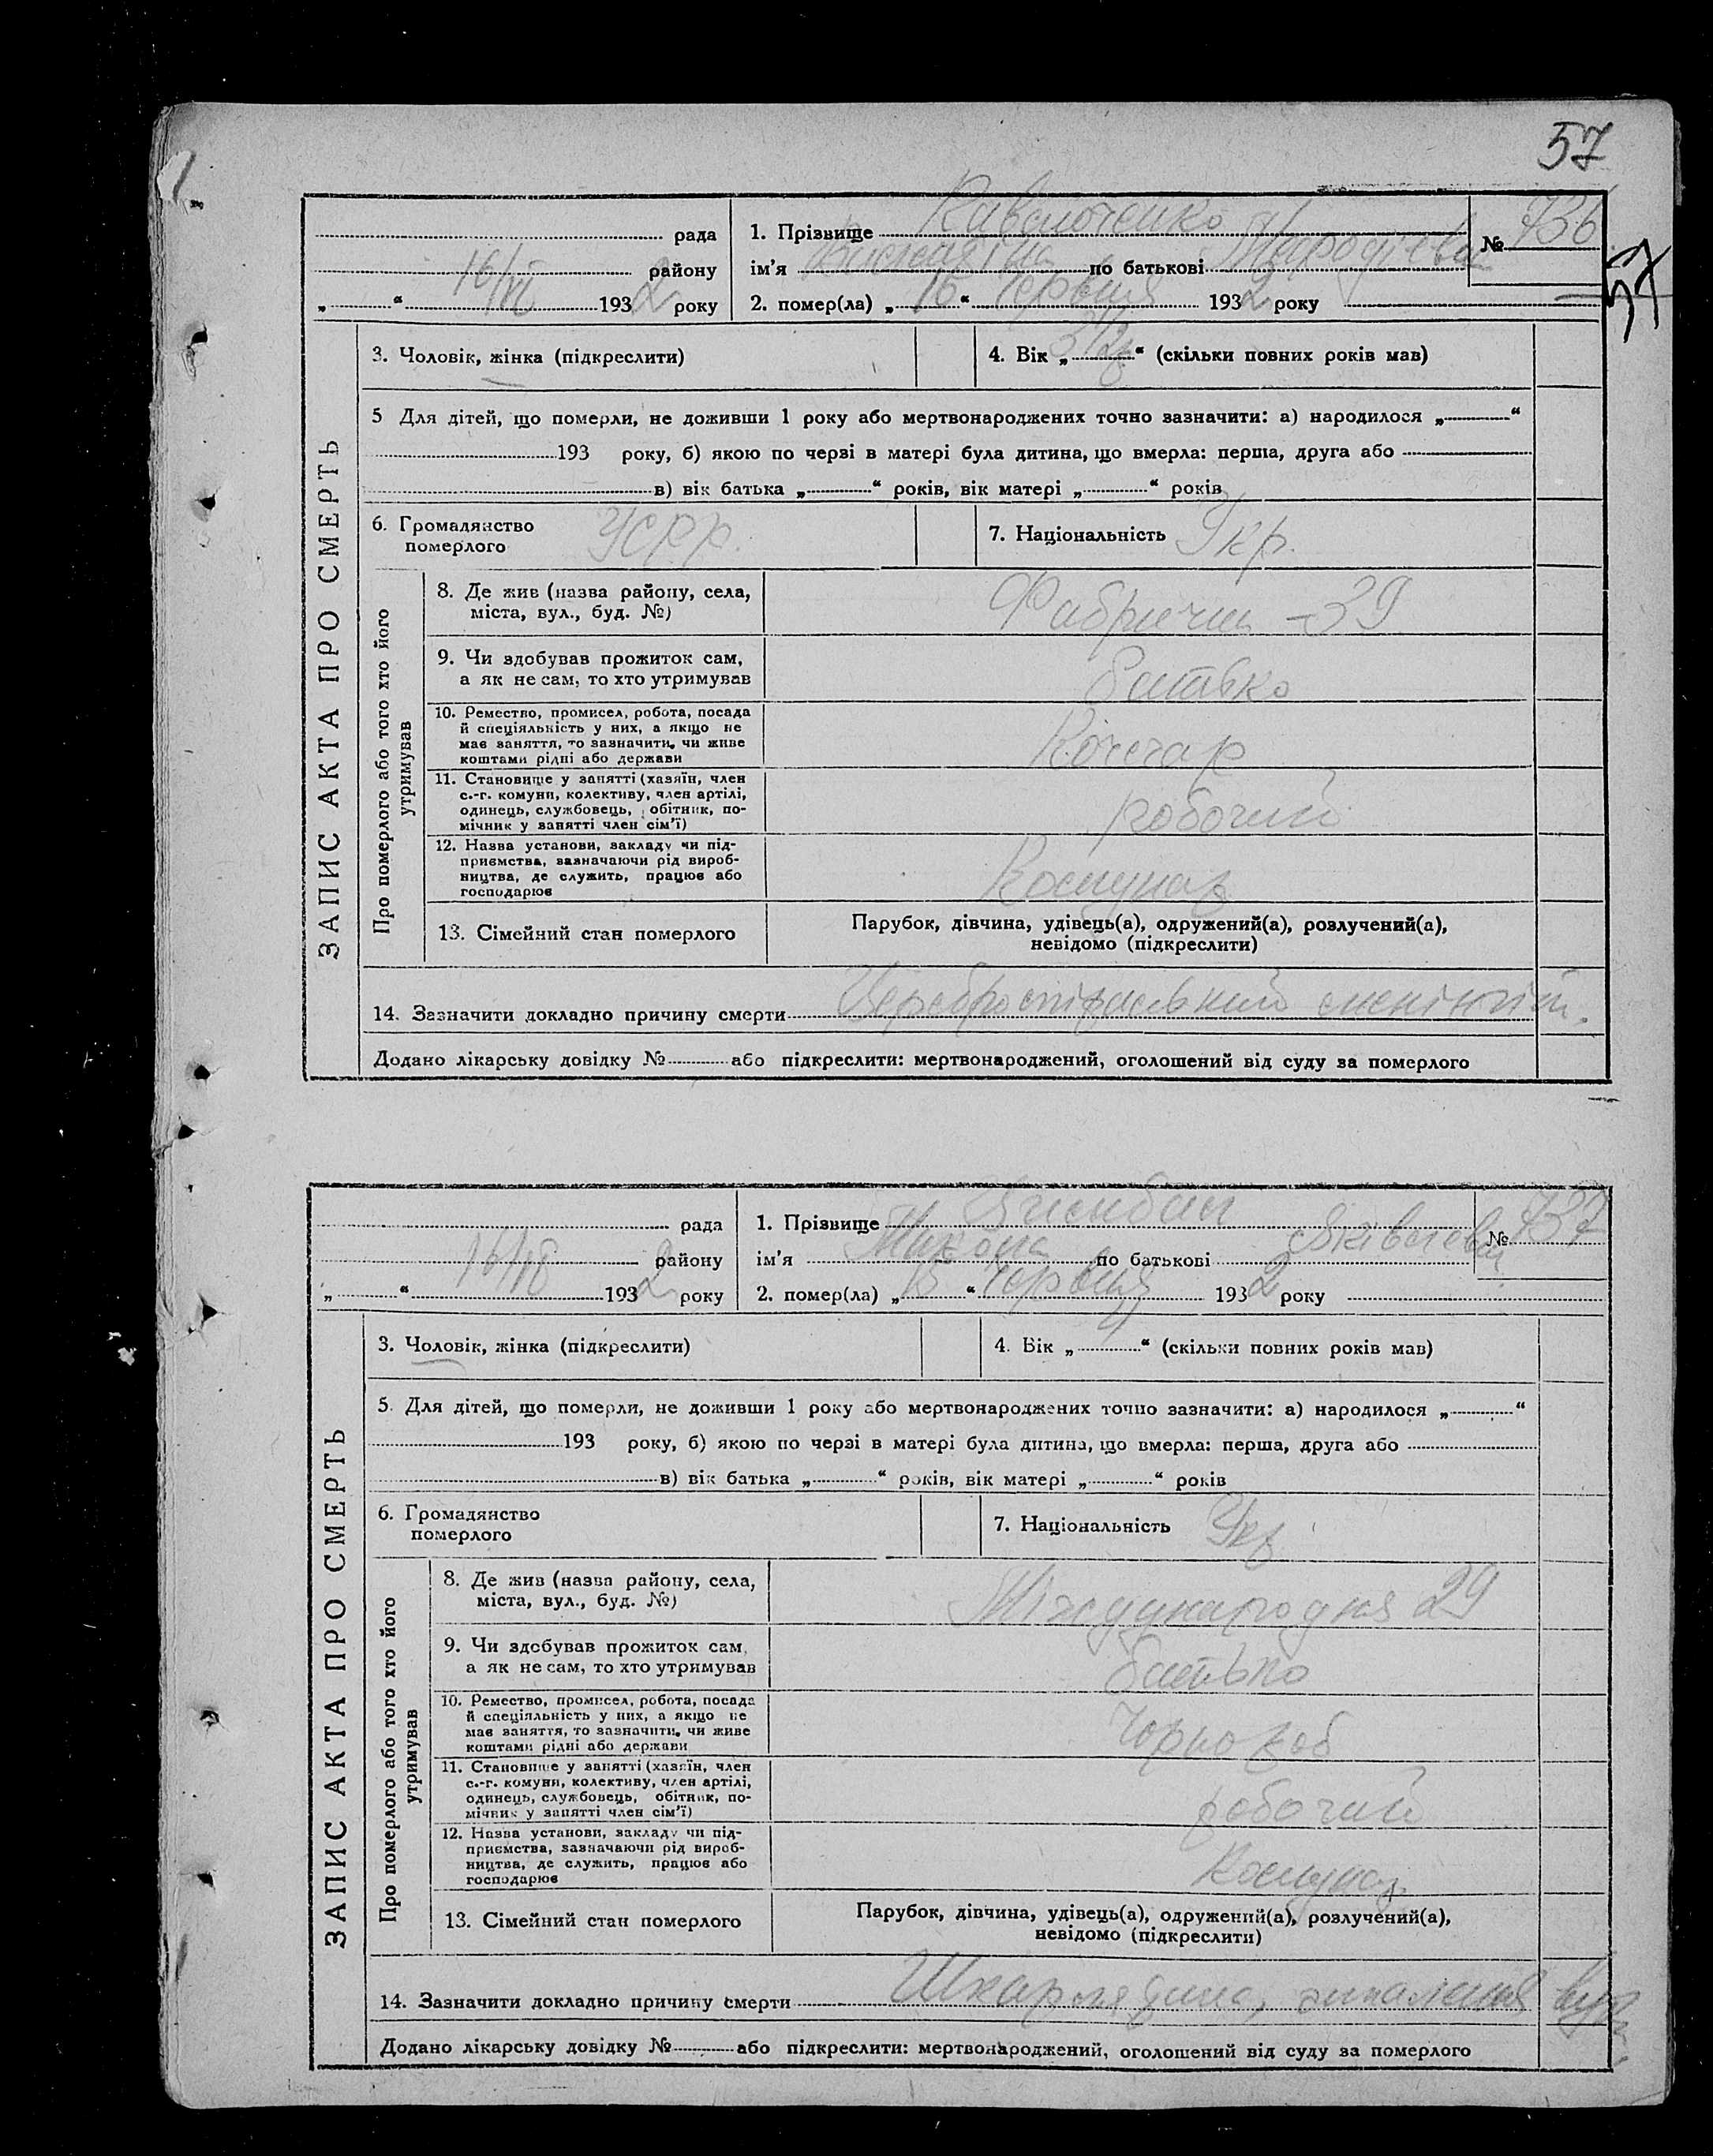 57
рада
1. Прізвище
№ 736
району
ім'я по батькові
57
„ “ 16/VI 1932 року
2. помер(ла) „ 16 “ Червня 1932 року
ЗАПИС АКТА ПРО СМЕРТЬ
3. Чоловік, жінка (підкреслити)
4. Вік „ 3 1/2 “ (скільки повних років мав)
5 Для дітей, що померли, не доживши 1 року або мертвонароджених точно зазначити: а) народилося „ “
193 року, б) якою по черзі в матері була дитина, що вмерла: перша, друга або
в) вік батька „ “ років, вік матері „ “ років
6. Громадянство
померлого
УСРР.
7. Національність Укр.
Про померлого або того хто його
утримував
8. Де жив (назва району, села,
міста, вул., буд. №)
Фабрична -39
9. Чи здобував прожиток сам,
а як не сам, то хто утримував
батько
10. Ремество, промисел, робота, посада
й спеціяльність у них, а якщо не
має заняття, то зазначити, чи живе
коштами рідні або держави
Кочегар
11. Становище у занятті (хазяїн, член
с.-г. комуни, колективу, член артілі,
одинець, службовець, обітник, по-
мічник у занятті член сім'ї)
робочий
12. Назва установи, закладу чи під-
приємства, зазначаючи рід вироб-
ництва, де служить, працює або
господарює
Комунал
13. Сімейний стан померлого
Парубок, дівчина, удівець(а), одружений(а), розлучений(а),
невідомо (підкреслити)
14. Зазначити докладно причину смерти Цереброспінальний менінгіт.
Додано лікарську довідку № або підкреслити: мертвонароджений, оголошений від суду за померлого
рада
1. Прізвище
№ 737
району
ім'я Микола по батькові Яківлевич
„ “ 16/VI 1932 року
2. помер(ла) „ 15 “ Червня 1932 року
ЗАПИС АКТА ПРО СМЕРТЬ
3. Чоловік, жінка (підкреслити)
4. Вік „ 4 “ (скільки повних років мав)
5. Для дітей, що померли, не доживши 1 року або мертвонароджених точно зазначити: а) народилося „ “
193 року, б) якою по черзі в матері була дитина, що вмерла: перша, друга або
в) вік батька „ “ років, вік матері „ “ років
6. Громадянство
померлого
7. Національність Укр
Про померлого або того хто його
утримував
8. Де жив (назва району, села,
міста, вул., буд. №)
Міждународня 29
9. Чи здобував прожиток сам,
а як не сам, то хто утримував
батько
10. Ремество, промисел, робота, посада
й спеціяльність у них, а якщо не
має заняття, то зазначити, чи живе
коштами рідні або держави
Чорнороб
11. Становище у занятті (хазяїн, член
с.-г. комуни, колективу, член артілі,
одинець, службовець, обітник, по-
мічник у занятті член сім'ї)
робочий
12. Назва установи, закладу чи під-
приємства, зазначаючи рід вироб-
ництва, де служить, працює або
господарює
Комунал
13. Сімейний стан померлого
Парубок, дівчина, удівець(а), одружений(а), розлучений(а),
невідомо (підкреслити)
14. Зазначити докладно причину смерти Шкарлядина, запалення
Додано лікарську довідку № або підкреслити: мертвонароджений, оголошений від суду за померлого